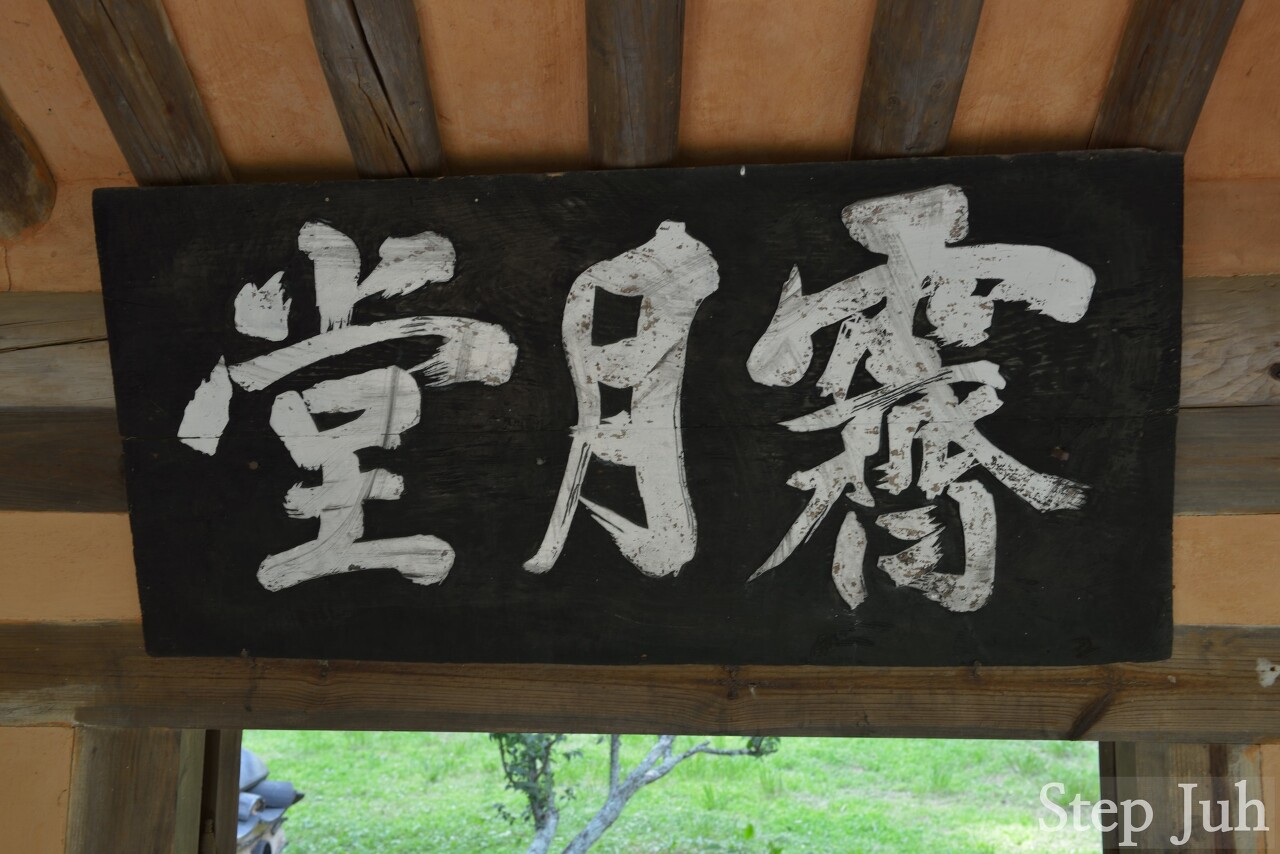 霽月堂
Step Juh